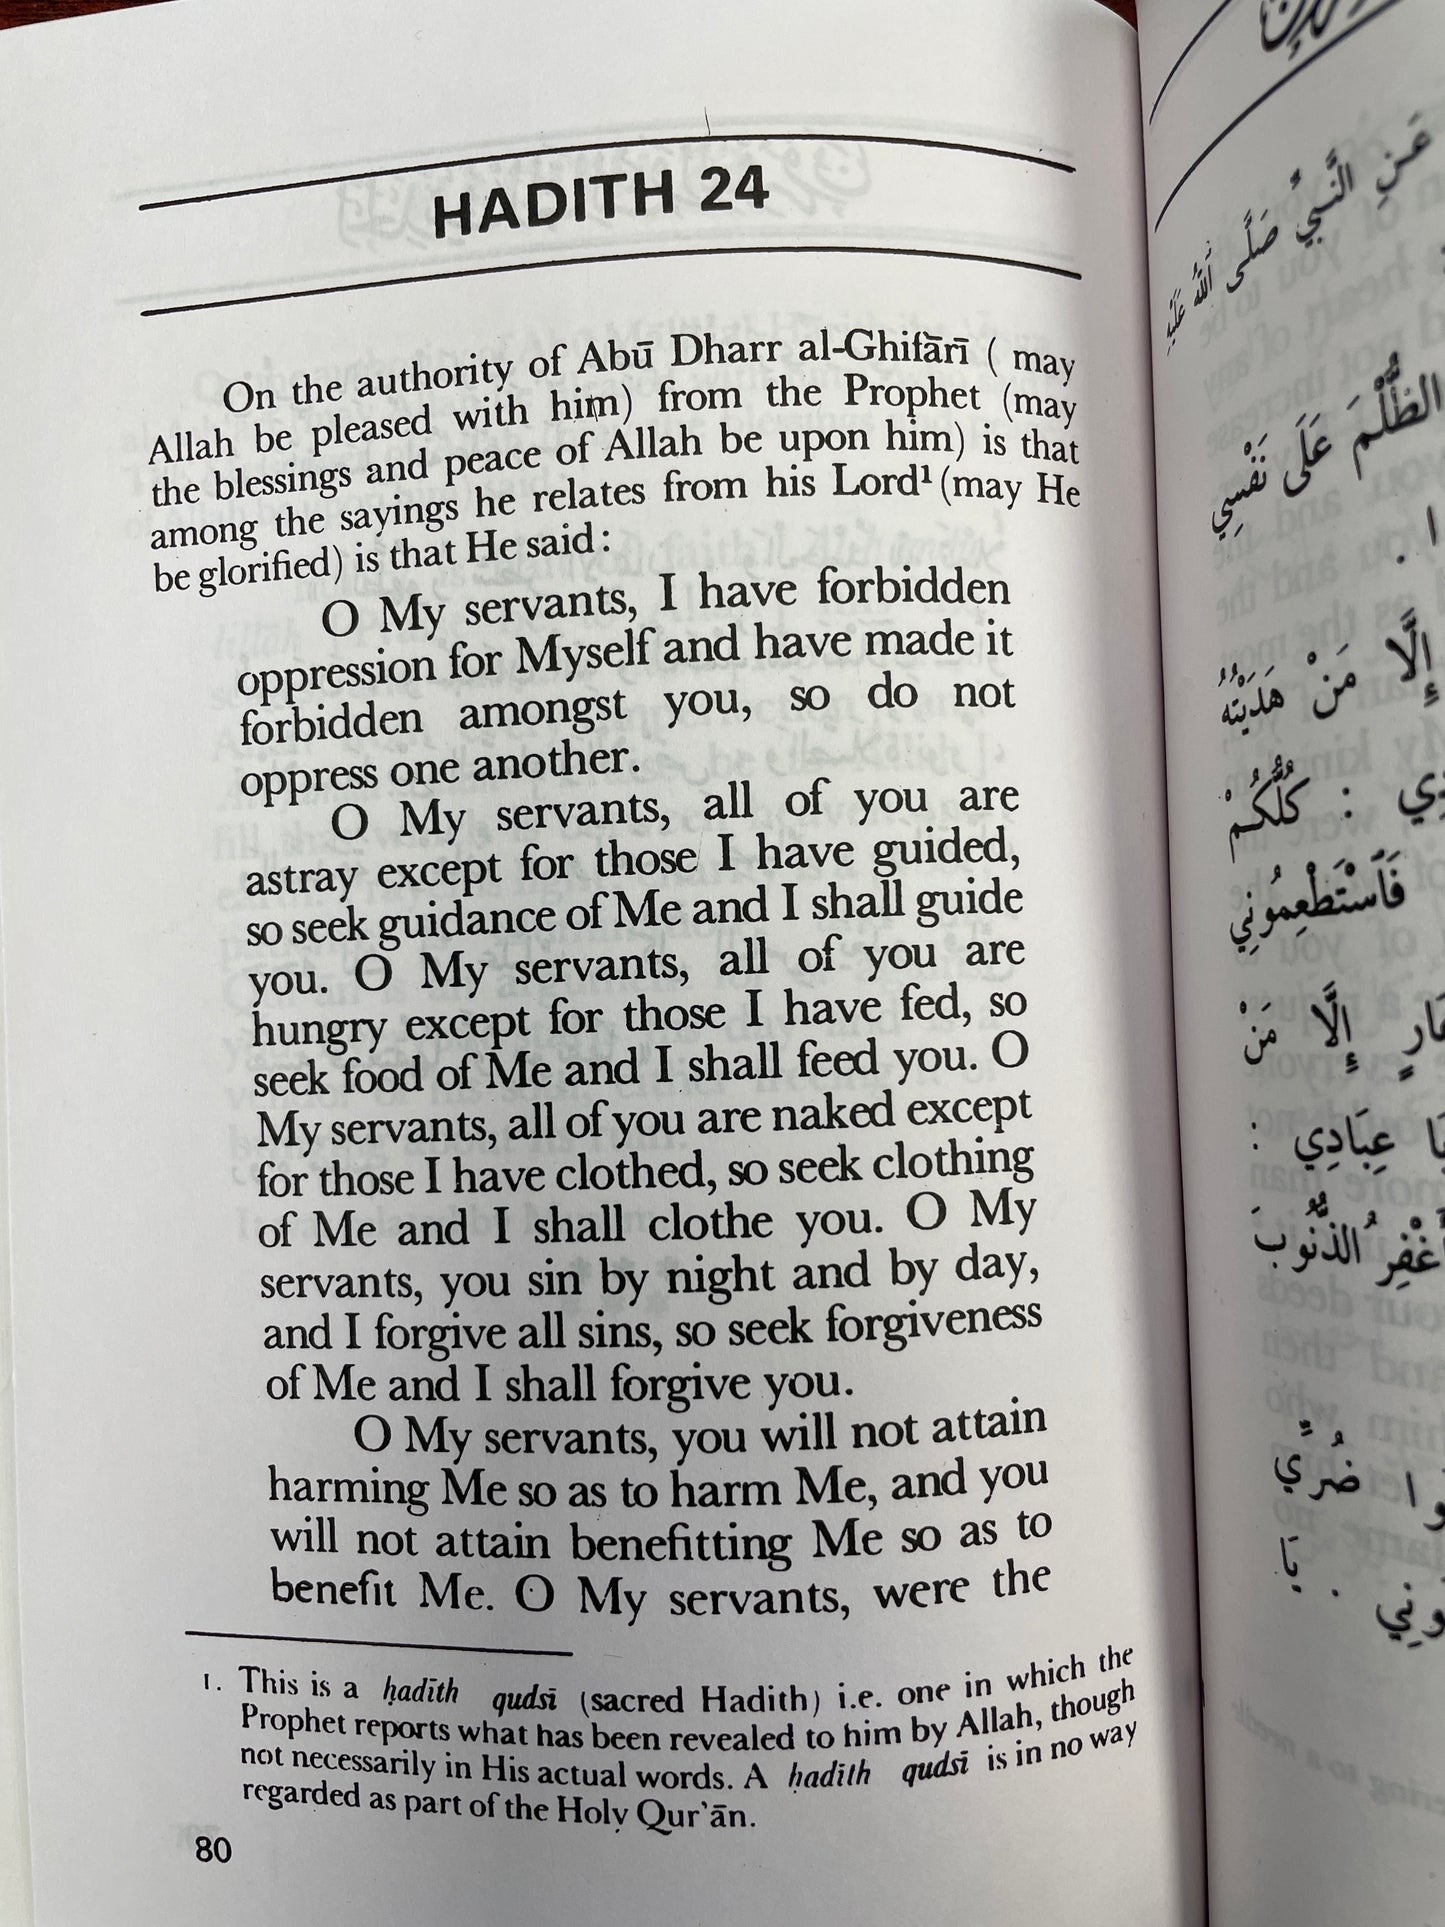 HADITH 24
On the authority of Abū Dharr al-Ghifārī ( may
Allah be pleased with him) from the Prophet (may
the blessings and peace of Allah be upon him) is that
among the sayings he relates from his Lord¹ (may He
be glorified) is that He said :
O My servants, I have forbidden
oppression for Myself and have made it
forbidden amongst you, so do not
oppress one another.
O My servants, all of you are
astray except for those I have guided,
so seek guidance of Me and I shall guide
you. O My servants, all of you are
hungry except for those I have fed, so
seek food of Me and I shall feed you. O
My servants, all of you are naked except
for those I have clothed, so seek clothing
of Me and I shall clothe you. O My
servants, you sin by night and by day,
and I forgive all sins, so seek forgiveness
of Me and I shall forgive you.
O My servants, you will not attain
harming Me so as to harm Me, and you
will not attain benefitting Me so as to
benefit Me. O My servants, were the
1. This is a ḥadīth qudsī (sacred Hadith) i.e. one in which the
Prophet reports what has been revealed to him by Allah, though
not necessarily in His actual words. A ḥadīth qudsī is in no way
regarded as part of the Holy Qur'ān.
80
عَنِ النَّبِيِّ صَلَّى اللَّهُ عَلَيْهِ
الظُّلْمَ عَلَى نَفْسِي
إِلَّا مَنْ هَدَيْتُهُ
: كُلُّكُمْ
فَاسْتَطْعِمُونِي
إِلَّا مَنْ
عِبَادِي :
الذُّنُوبَ
ضُرِّي
. يَا